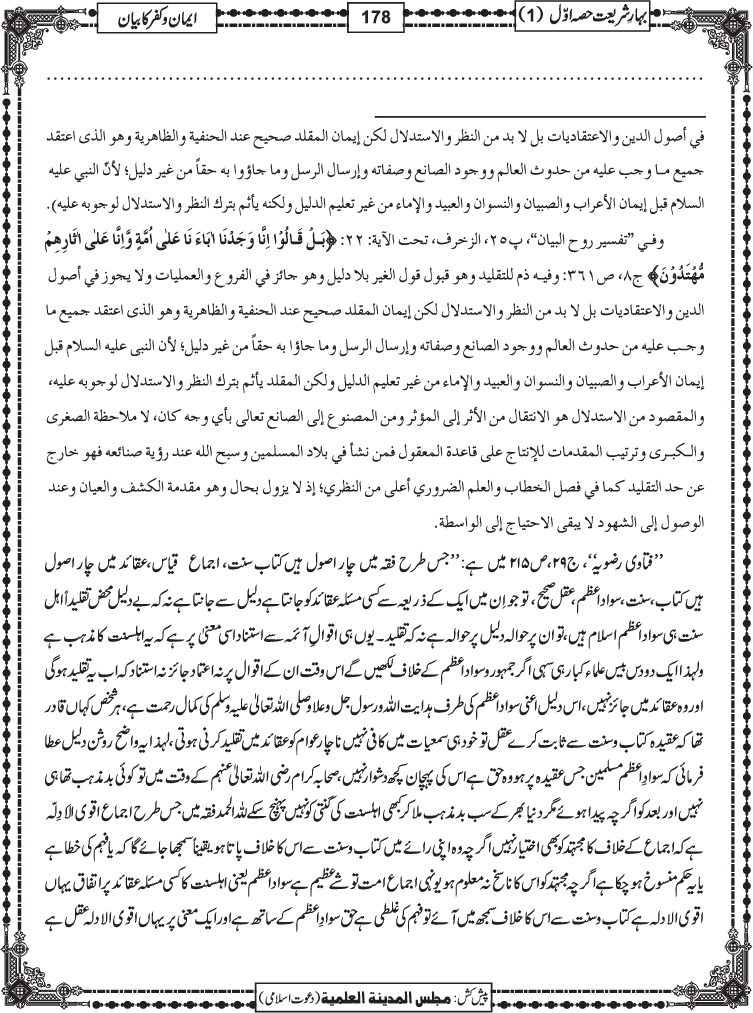 بہارِ شریعت حصہ اوّل (1)
178
ایمان و کفر کا بیان
في أصول الدين والاعتقاديات بل لا بد من النظر والاستدلال لكن إيمان المقلد صحيح عند الحنفية والظاهرية وهو الذى اعتقد
جميع ما وجب عليه من حدوث العالم ووجود الصانع وصفاته وإرسال الرسل وما جاؤوا به حقاً من غير دليل؛ لأنّ النبي عليه
السلام قبل إيمان الأعراب والصبيان والنسوان والعبيد والإماء من غير تعليم الدليل ولكنه يأثم بترك النظر والاستدلال لوجوبه عليه).
وفي ”تفسير روح البيان“، پ٢٥، الزخرف، تحت الآية: ٢٢: ﴿بَلْ قَالُوْا اِنَّا وَجَدْنَا اٰبَاءَ نَا عَلٰى اُمَّةٍ وَّاِنَّا عَلٰى اٰثَارِهِمْ
مُّهْتَدُوْنَ﴾ ج٨، ص٣٦١: وفيه ذم للتقليد وهو قبول قول الغير بلا دليل وهو جائز في الفروع والعمليات ولا يجوز في أصول
الدين والاعتقاديات بل لا بد من النظر والاستدلال لكن إيمان المقلد صحيح عند الحنفية والظاهرية وهو الذى اعتقد جميع ما
وجب عليه من حدوث العالم ووجود الصانع وصفاته وإرسال الرسل وما جاؤا به حقاً من غير دليل؛ لأن النبى عليه السلام قبل
إيمان الأعراب والصبيان والنسوان والعبيد والإماء من غير تعليم الدليل ولكن المقلد يأثم بترك النظر والاستدلال لوجوبه عليه،
والمقصود من الاستدلال هو الانتقال من الأثر إلى المؤثر ومن المصنوع إلى الصانع تعالى بأي وجه كان، لا ملاحظة الصغرى
والكبرى وترتيب المقدمات للإنتاج على قاعدة المعقول فمن نشأ في بلاد المسلمين وسبح الله عند رؤية صنائعه فهو خارج
عن حد التقليد كما في فصل الخطاب والعلم الضروري أعلى من النظري؛ إذ لا يزول بحال وهو مقدمة الكشف والعيان وعند
الوصول إلى الشهود لا يبقى الاحتياج إلى الواسطة.
’’فتاوی رضویہ‘‘، ج۲۹، ص۲۱۵ میں ہے: ’’جس طرح فقہ میں چار اصول ہیں کتاب سنت، اجماع قیاس، عقائد میں چار اصول
ہیں کتاب، سنت، سوادِ اعظم، عقل صحیح، تو جو اِن میں ایک کے ذریعہ سے کسی مسئلہ عقائد کو جانتا ہے دلیل سے جانتا ہے نہ کہ بے دلیل محض تقلیداً اہل
سنت ہی سوادِ اعظم اسلام ہیں، تو ان پر حوالہ دلیل پر حوالہ ہے نہ کہ تقلید۔ یوں ہی اقوالِ آئمہ سے استناد اسی معنیٰ پر ہے کہ یہ اہلسنت کا مذہب ہے
ولہذا ایک دو دس بیس علماء کبار ہی سہی اگر جمہور و سوادِ اعظم کے خلاف لکھیں گے اس وقت ان کے اقوال پر نہ اعتماد جائز نہ استناد کہ اب یہ تقلید ہوگی
اور وہ عقائد میں جائز نہیں، اس دلیل اعنی سوادِ اعظم کی طرف ہدایت اللہ و رسول جل وعلا وصلی اللہ تعالیٰ علیہ وسلم کی کمال رحمت ہے، ہر شخص کہاں قادر
تھا کہ عقیدہ کتاب وسنت سے ثابت کرے عقل تو خود ہی سمعیات میں کافی نہیں ناچار عوام کو عقائد میں تقلید کرنی ہوتی، لہذا یہ واضح روشن دلیل عطا
فرمائی کہ سوادِ اعظم مسلمین جس عقیدہ پر ہو وہ حق ہے اس کی پہچان کچھ دشوار نہیں، صحابہ کرام رضی اللہ تعالیٰ عنہم کے وقت میں تو کوئی بد مذہب تھا ہی
نہیں اور بعد کو اگرچہ پیدا ہوئے مگر دنیا بھر کے سب بد مذہب ملا کر کبھی اہلسنت کی گنتی کو نہیں پہنچ سکے للہ الحمد فقہ میں جس طرح اجماع اقوی الادلّہ
ہے کہ اجماع کے خلاف کا مجتہد کو بھی اختیار نہیں اگرچہ وہ اپنی رائے میں کتاب وسنت سے اس کا خلاف پاتا ہو یقیناً سمجھا جائے گا کہ یا فہم کی خطا ہے
یا یہ حکم منسوخ ہو چکا ہے اگرچہ مجتہد کو اس کا ناسخ نہ معلوم ہو یونہی اجماع امت تو شئے عظیم ہے سوادِ اعظم یعنی اہلسنت کا کسی مسئلہ عقائد پر اتفاق یہاں
اقوی الادلہ ہے کتاب وسنت سے اس کا خلاف سمجھ میں آئے تو فہم کی غلطی ہے حق سوادِ اعظم کے ساتھ ہے اور ایک معنیٰ پر یہاں اقوی الادلہ عقل ہے
پیش کش: مجلس المدینۃ العلمیۃ (دعوت اسلامی)